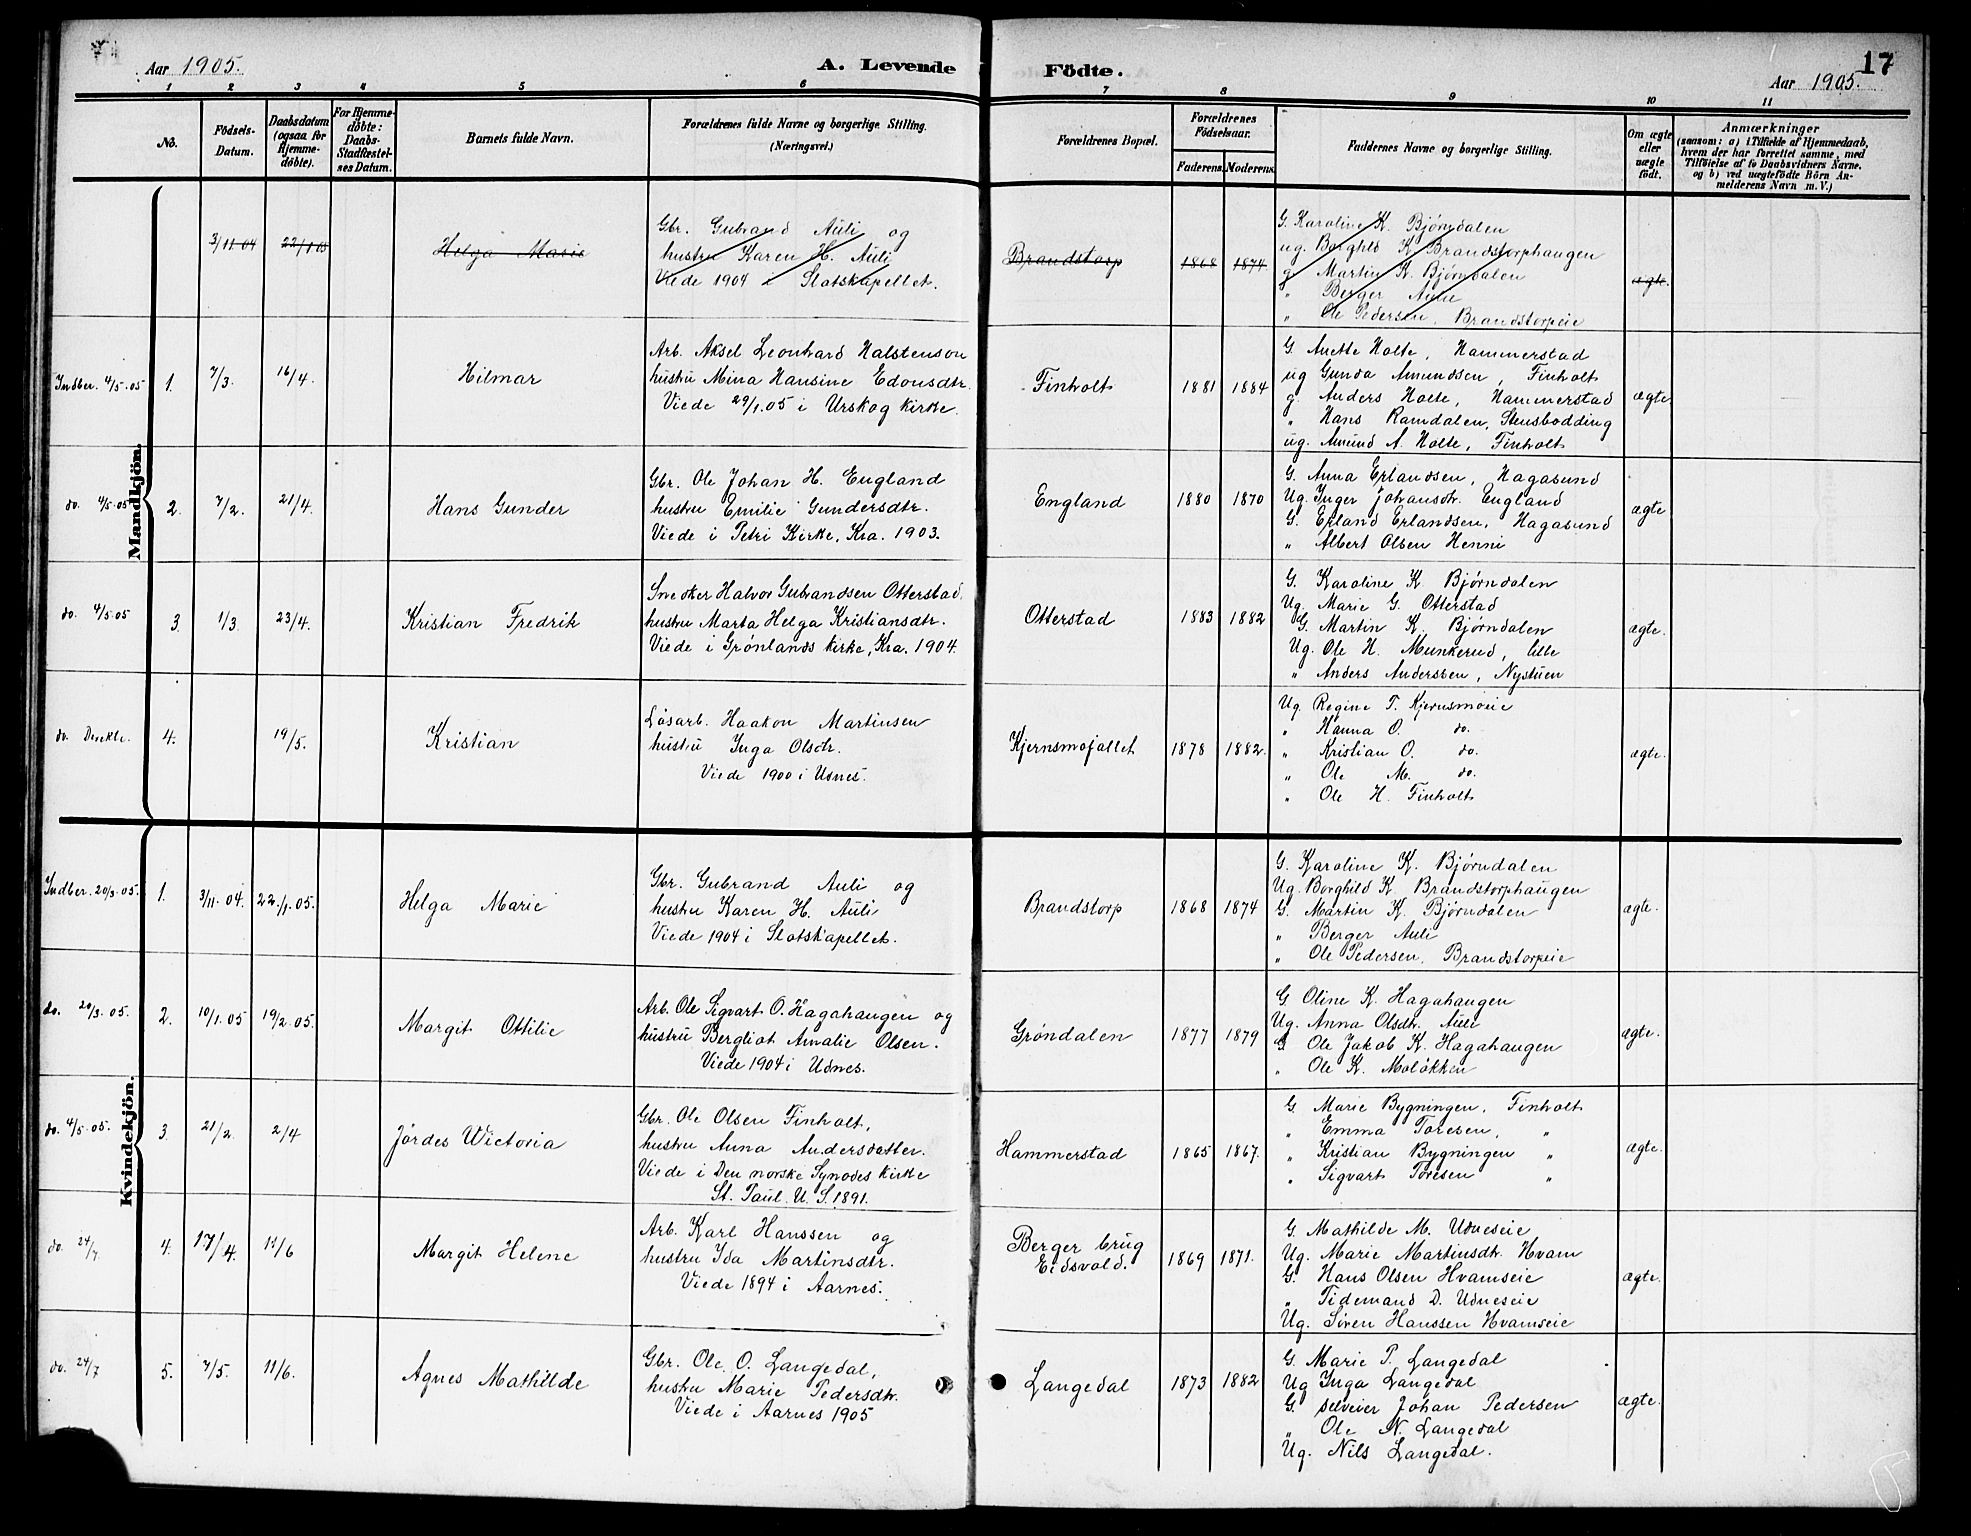 Aar 1905.
A. Levende
Födte.
17
Aar 1905.
1 2 3 4 5 6 7 8 9 10 11
No.
Födsels-Datum.
Daabsdatum (ogsaa for Hjemme-döbte).
For Hjemme-döbte: Daabs-Stadfæstel-ses Datum.
Barnets fulde Navn.
Forældrenes fulde Navne og borgerlige Stilling.
(Næringsvei.)
Forældrenes Bopæl.
Forældrenes Födselsaar.
Faderens. Moderens.
Faddernes Navne og borgerlige Stilling.
Om ægte eller uægte födt.
Anmærkninger
(saasom: a) i Tilfælde af Hjemmedaab,
hvem der har forrettet samme, med
Tilföielse af to Daabsvidners Navne.
og b) ved uægtefödte Börn An-
melderens Navn m. V.)
Mandkjön.
3/11 04 22/1 05 Helga Marie
Gbr. Gubrand Auli og
hustru Karen H. Auli
Viede 1904 i Slotskapellet.
Brandstorp 1868 1874
G. Karoline K. Bjørndalen
ug. Borghld K. Brandstorphaugen
g. Martin K. Bjørndalen
" Berger Aulie
" Ole Pedersen, Brandstorpeie
ægte.
Indber. 4/5.05 1. 7/3. 16/4. Hilmar
Arb. Aksel Leonhard Halstenson
hustru Mina Hansine Edonsdtr.
Viede 29/1.05 i Urskog kirke.
Finholt 1881 1884
G. Anette Holte, Hammerstad
ug Gunda Amundsen, Finholt
g. Anders Holte, Hammerstad
" Hans Ramdalen, Stensbodding
ug. Amund A. Holte, Finholt
ægte
do. 4/5.05 2. 7/2. 21/4. Hans Gunder
Gbr. Ole Johan H. England
hustru Emilie Gundersdtr.
Viede i Petri Kirke, Kra. 1903.
England 1880 1870
G. Anna Erlandsen, Hagasund
Ug. Inger Johansdtr. England
G. Erland Erlandsen, Hagasund
" Albert Olsen Henni
ægte
do. 4/5.05 3. 1/3. 23/4. Kristian Fredrik
Snedker Halvor Gubrandsen Otterstad,
hustru Marta Helga Kristiansdtr.
Viede i Grønlands kirke, Kra. 1904.
Otterstad 1883 1882
G. Karoline K. Bjørndalen
Ug. Marie G. Otterstad
G. Martin K. Bjørndalen
Ug. Ole H. Munkerud, lille
" Anders Anderssen, Nystuen
ægte.
do. Direkte. 4. 19/5. Kristian
Løsarb. Haakon Martinsen
hustru Inga Olsdtr.
Viede 1900 i Udnes.
Kjernsmofallet 1878 1882.
Ug. Regine T. Kjernsmoeie
" Hanna O. do.
" Kristian O. do.
" Ole M. do.
" Ole H. Finholt
ægte.
Kvindekjön.
Indber. 20/3.05. 1. 3/11.04. 22./1.05. Helga Marie
Gbr. Gubrand Auli og
hustru Karen H. Auli
Viede 1904 i Slotskapellet.
Brandstorp 1868 1874
G. Karoline K. Bjørndalen
Ug. Borghild K. Brandstorphaugen
G. Martin K. Bjørndalen
" Berger Auli
" Ole Pedersen, Brandstorpeie
ægte.
do. 20/3.05. 2. 10/1.05 19/2.05. Margit Ottilie
Arb. Ole Sigvart O. Hagahaugen og
hustru Bergliot Amalie Olsen.
Viede 1904 i Udnes.
Grøndalen 1877 1879
G Oline K. Hagahaugen
Ug. Anna Olsdtr. Auli
G Ole Jakob K. Hagahaugen
" Ole K. Moløkken
ægte.
do. 4/5.05. 3. 21/2. 2/4 Jørdes Wictoria
Gbr. Ole Olsen Finholt,
hustru Anna Andersdatter.
Viede i Den norske Synodes kirke
St. Paul. U. S. 1891.
Hammerstad 1865 1867.
G. Marie Bygningen, Finholt
" Emma Toresen, "
" Kristian Bygningen "
" Sigvart Toresen "
ægte.
do. 24/7. 4. 17/4. 11/6 Margit Helene
Arb. Karl Hanssen og
hustru Ida Martinsdtr.
Viede 1894 i Aarnes.
Berger brug
Eidsvold.
1869 1871.
G. Mathilde M. Udneseie
Ug. Marie Martinsdtr. Hvam
G. Hans Olsen Hvamseie
" Tidemand D. Udneseie
Ug. Søren Hanssen Hvamseie
ægte.
do. 24/7 5. 7/5. 11/6. Agnes Mathilde
Gbr. Ole O. Langedal,
hustru Marie Pedersdtr.
Viede i Aarnes 1905
Langedal 1873 1882
G. Marie P. Langedal
Ug Inga Langedal
G. selveier Johan Pedersen
" Ole N. Langedal
Ug. Nils Langedal.
ægte.